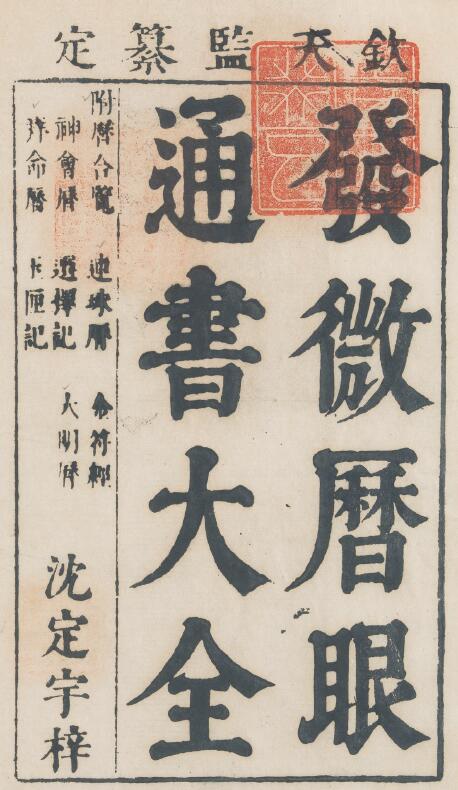 欽天監纂定
發微曆眼
通書大全
附曆合覽 連珠曆 命符經
神會曆 選擇記 大明曆
命曆 匣記
沈定宇梓